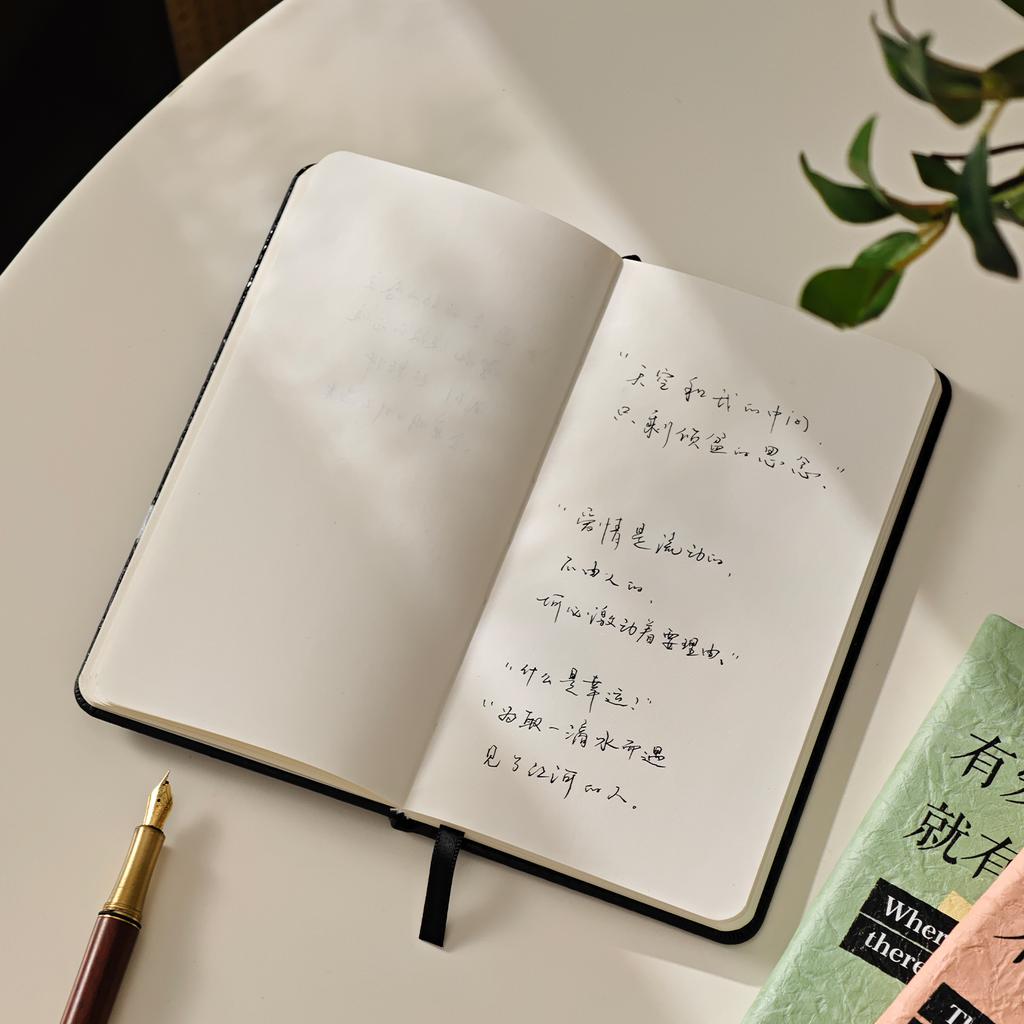 “天空和我的中间,
只剩倾盆的思念.”
“爱情是流动的,
不由人的,
何必激动着要理由.”
“什么是幸运?”
“为取一滴水而遇
见了江河的人。
有
就有
When
there
Th